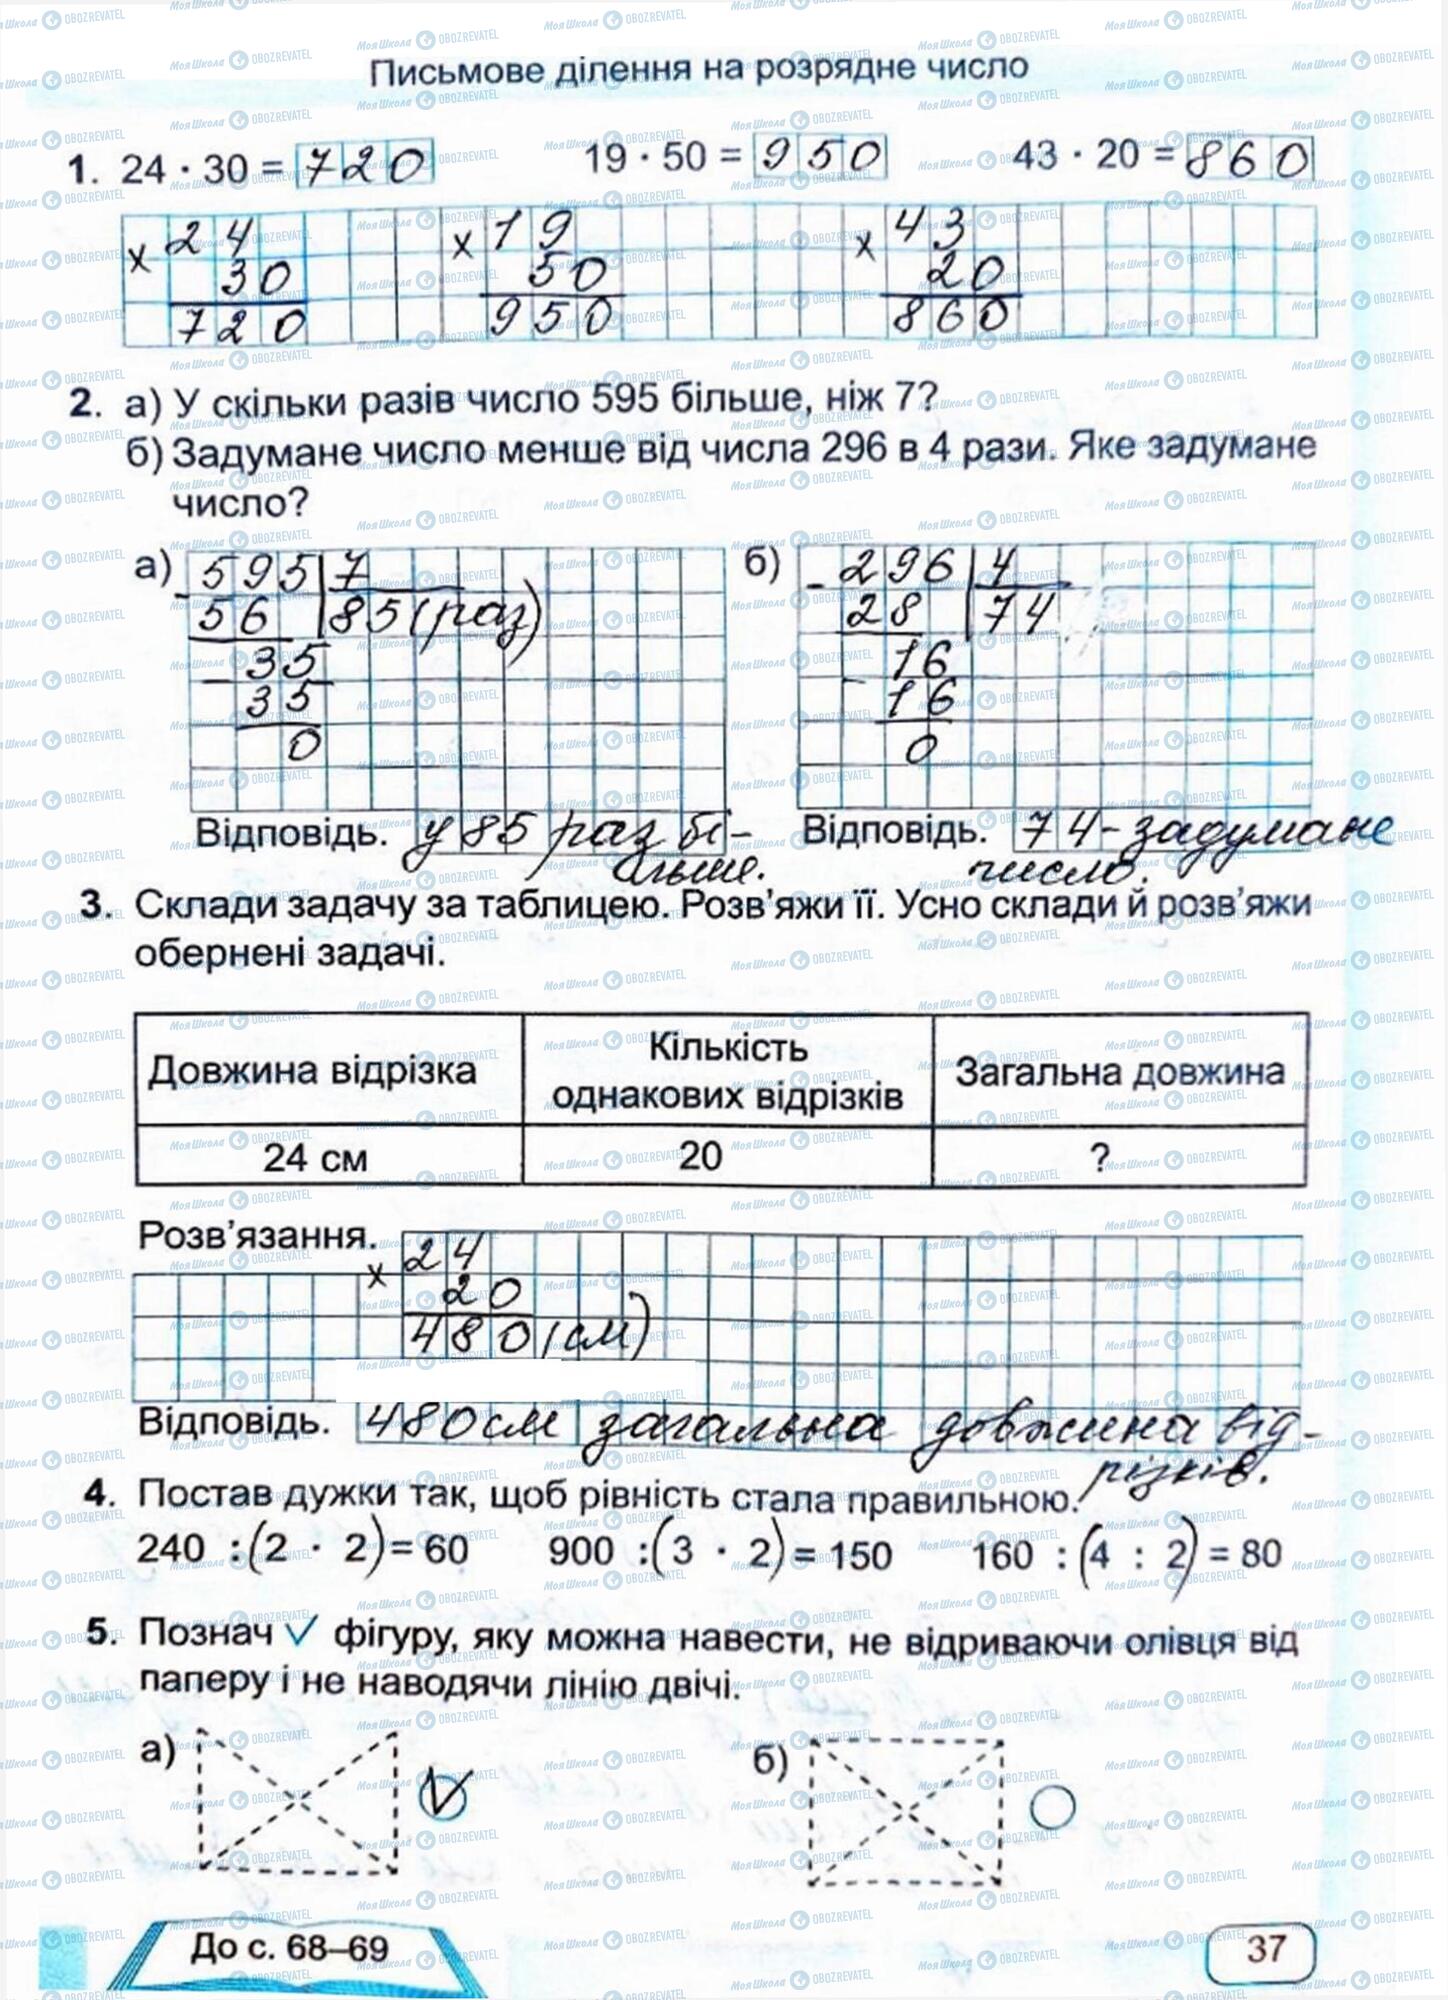 Письмове ділення на розрядне число
1. 24 · 30 = 720 19 · 50 = 950 43 · 20 = 860
× 24 × 19 × 43
30 50 20
720 950 860
2. а) У скільки разів число 595 більше, ніж 7?
б) Задумане число менше від числа 296 в 4 рази. Яке задумане
число?
а) - 595 7 б) - 296 4
56 85 (раз) 28 74
- 35 - 16
35 16
0 0
Відповідь. у 85 раз бі- Відповідь. 74 - задумане
льше. число.
3. Склади задачу за таблицею. Розв'яжи її. Усно склади й розв'яжи
обернені задачі.
Довжина відрізка Кількість однакових відрізків Загальна довжина
24 см 20 ?
Розв'язання. × 24
20
480 (см)
Відповідь. 480 см загальна довжина від-
різків.
4. Постав дужки так, щоб рівність стала правильною.
240 : (2 · 2) = 60 900 : (3 · 2) = 150 160 : (4 : 2) = 80
5. Познач √ фігуру, яку можна навести, не відриваючи олівця від
паперу і не наводячи лінію двічі.
а) √ б)
До с. 68–69
37
МояШкола OBOZREVATEL